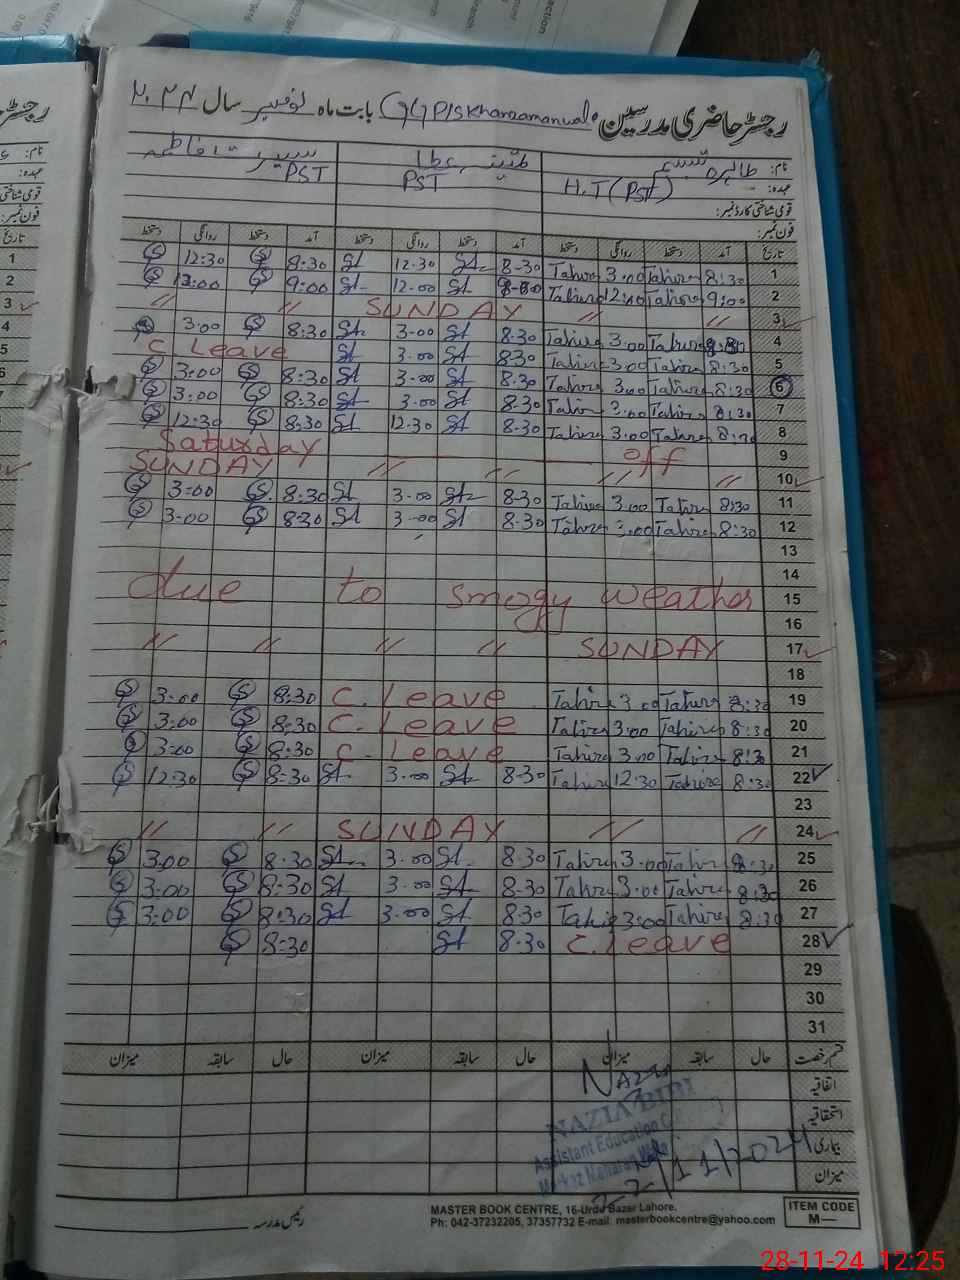 رجسٹر حاضری مدرسین GGP/S Kharaamanual بابت ماہ نومبر سال ۲۰۲۴
نام: طاہرہ تبسم طیبہ عطا سیرت فاطمہ
عہدہ: H.T (PST) PST PST
قومی شناختی کارڈ نمبر:
فون نمبر:
تاریخ آمد دستخط روانگی دستخط آمد دستخط روانگی دستخط آمد دستخط روانگی دستخط
1 8:30 Tahira 3.00 Tahira 8-30 St 12.30 St 8:30 S 12:30 S
2 9:00 Tahira 12.00 Tahira St 12.00 St 9:00 S 12:00 S
3 // // SUNDAY // //
4 8:30 Tahira 3.00 Tahira 8.30 St 3.00 St 8:30 S 3:00 S
5 8:30 Tahira 3.00 Tahira 8.30 St 3.00 St C. Leave
6 8:30 Tahira 3.00 Tahira 8.30 St 3.00 St 8:30 S 3:00 S
7 8:30 Tahira 3.00 Tahira 8.30 St 3.00 St 8:30 S 3:00 S
8 8:30 Tahira 3.00 Tahira 8.30 St 12.30 St 8:30 S 12:30 S
9 Saturday off
10 SUNDAY // // // //
11 8:30 Tahira 3.00 Tahira 8.30 St 3.00 St 8:30 S 3:00 S
12 8:30 Tahira 3.00 Tahira 8.30 St 3.00 St 8:30 S 3:00 S
13
14
15 due to smogy weather
16
17 // // // // SUNDAY
18
19 8:30 Tahira 3.00 Tahira C. Leave 8:30 S 3:00 S
20 8:30 Tahira 3.00 Tahira C. Leave 8:30 S 3:00 S
21 8:30 Tahira 3.00 Tahira C. Leave 8:30 S 3:00 S
22 8:30 Tahira 12.30 Tahira 8.30 St 3.00 St 8:30 S 12:30 S
23
24 // // SUNDAY // //
25 8:30 Tahira 3.00 Tahira 8.30 St 3.00 St 8:30 S 3:00 S
26 8:30 Tahira 3.00 Tahira 8.30 St 3.00 St 8:30 S 3:00 S
27 8:30 Tahira 3:00 Tahira 8.30 St 3.00 St 8:30 S 3:00 S
28 C. Leave 8.30 St 8:30 S
29
30
31
قسم رخصت حال سابقہ میزان حال سابقہ میزان حال سابقہ میزان
اتفاقیہ
استحقاقیہ
بیماری
میزان
Nazia
NAZIA BIBI
Assistant Education
22/11/2024
رئیس مدرسہ
MASTER BOOK CENTRE, 16-Urdu Bazar Lahore.
Ph: 042-37232205, 37357732 E-mail: masterbookcentre@yahoo.com
ITEM CODE
M—
28-11-24 12:25